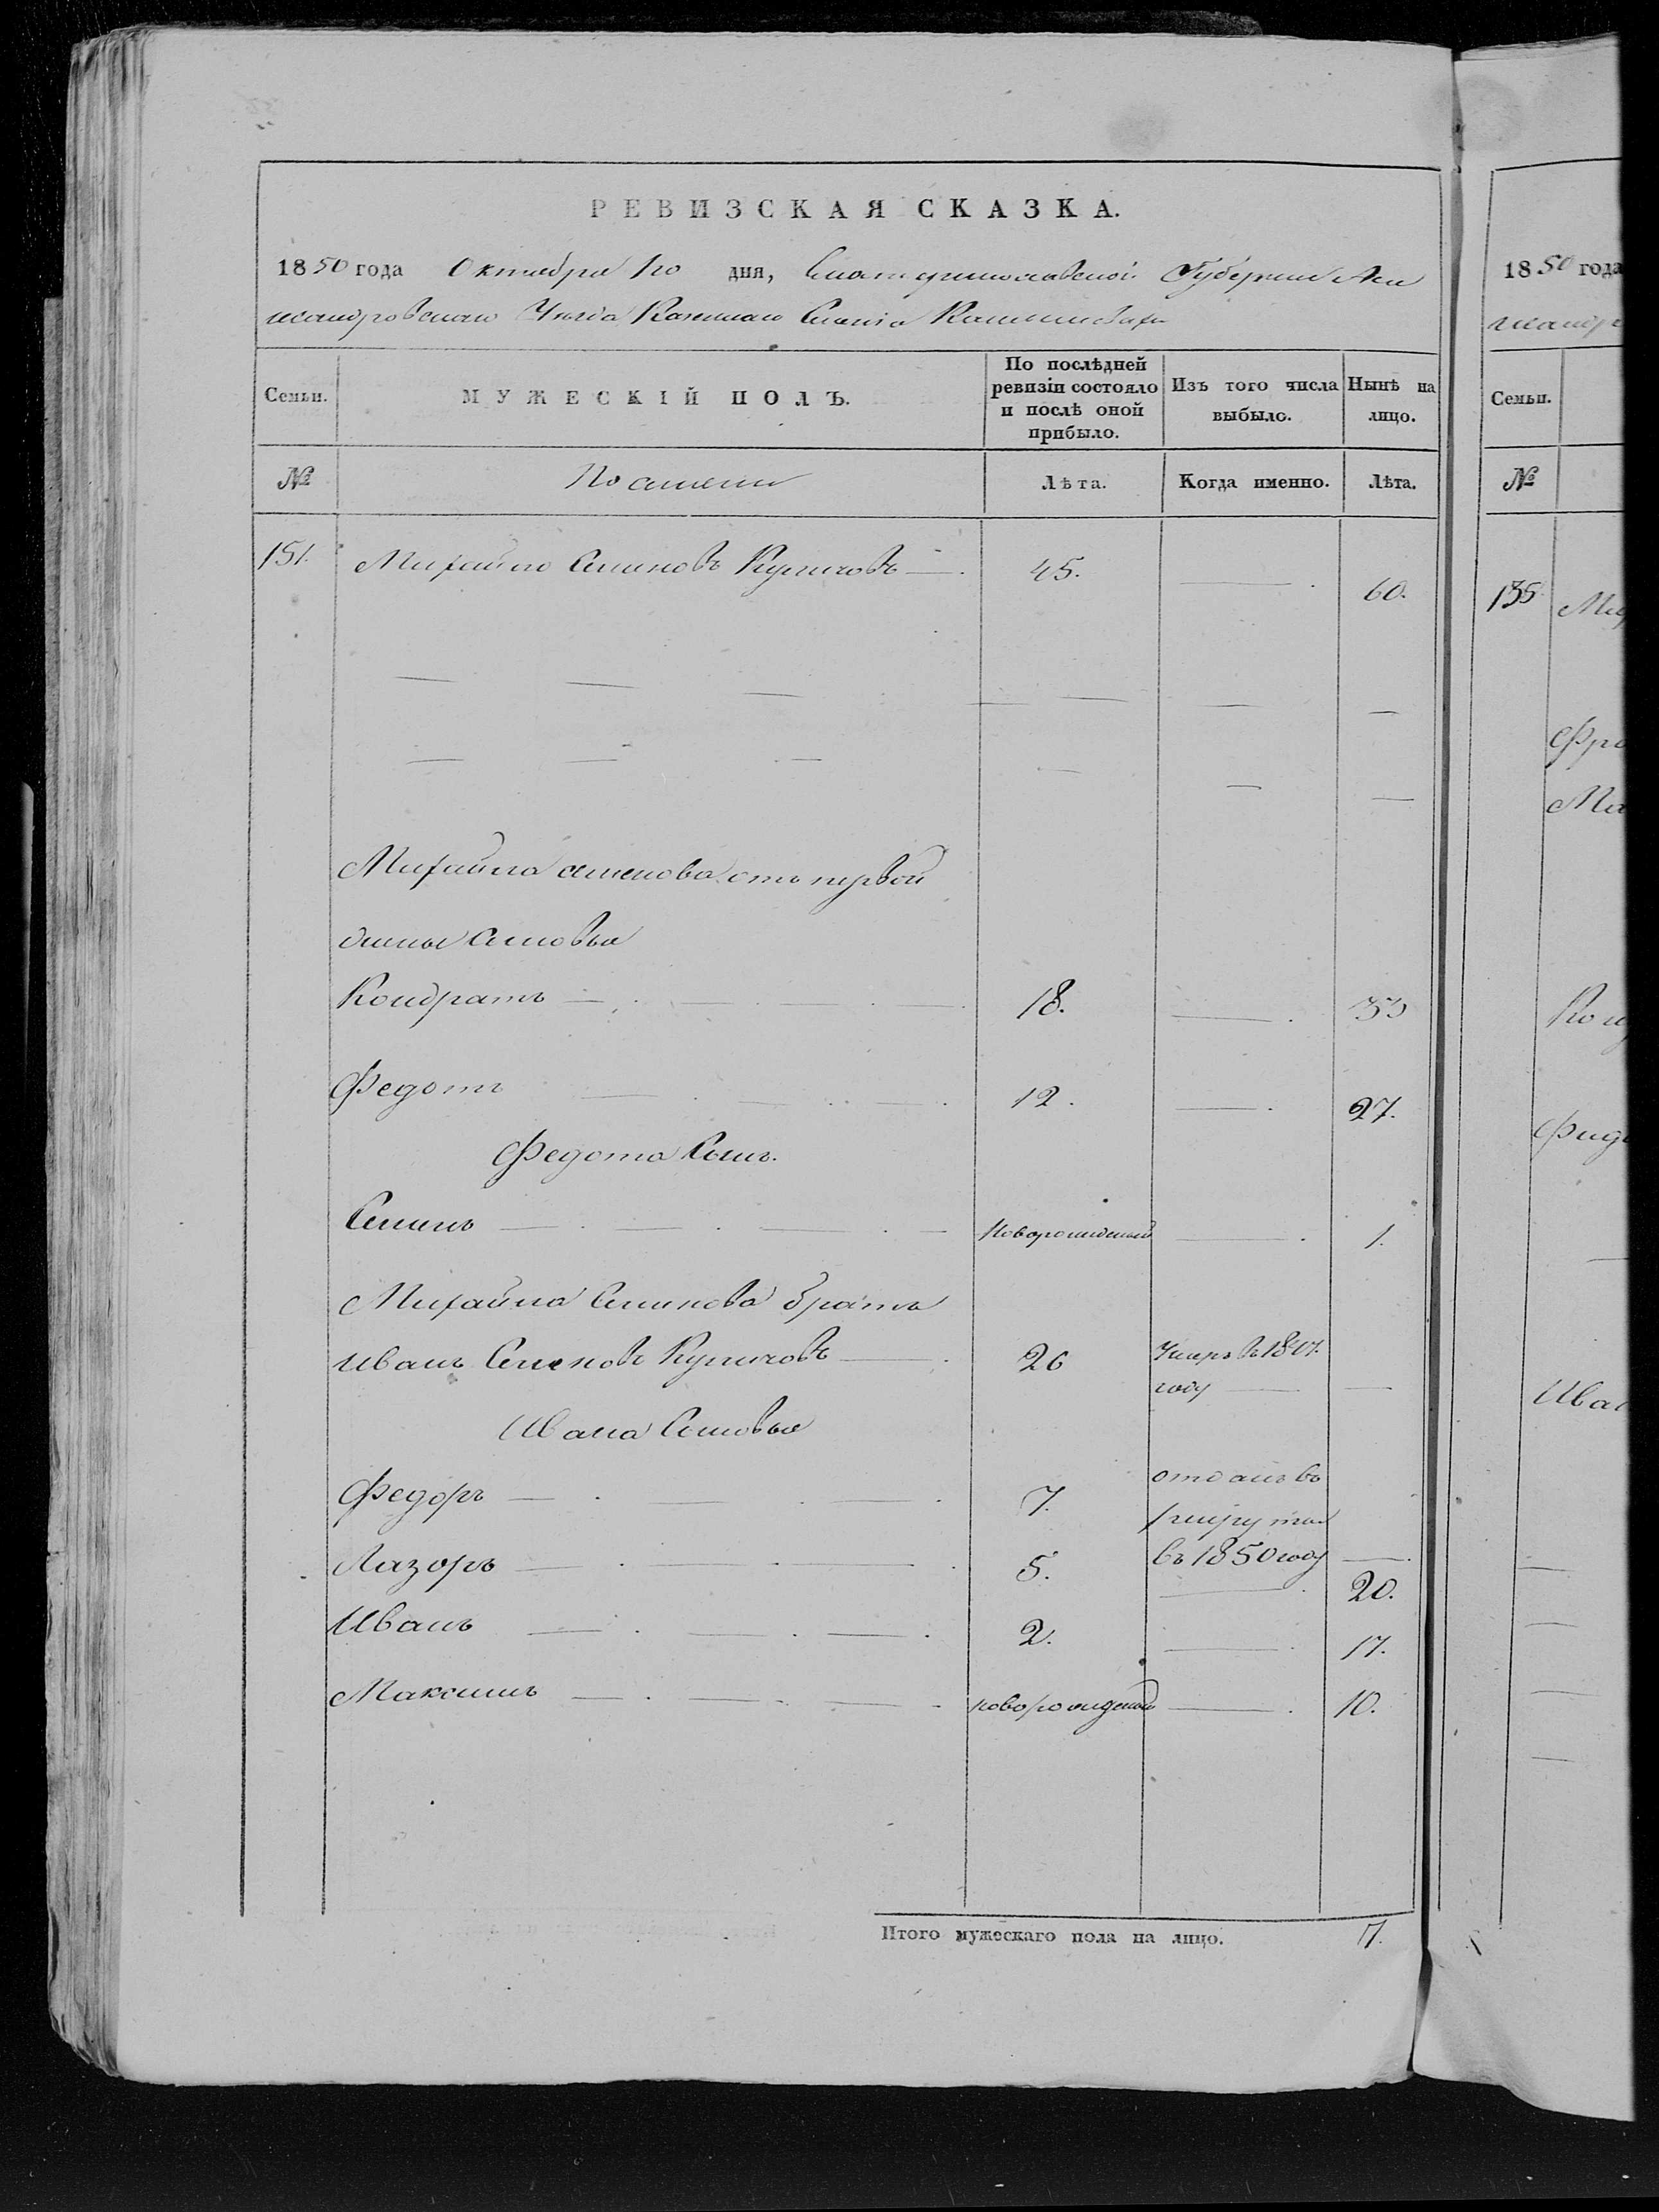 РЕВИЗСКАЯ СКАЗКА.
1850 года Октября 1го дня, Екатеринославской Губерніи Але
ксандровскаго Уѣзда Казеннаго Селенія
Семьи. МУЖЕСКІЙ ПОЛЪ. По послѣдней ревизіи состояло и послѣ оной прибыло. Изъ того числа выбыло. Нынѣ на лицо.
№ Лѣта. Когда именно. Лѣта.
151. Михайло Семеновъ 45. 60.
Михайла семенова отъ первой
жены Сыновья
Кондратъ 18. 33
Федотъ 12. 27.
Федота Сынъ.
Семенъ Новорожденый 1.
Михайла Семенова братъ
Иванъ Семеновъ 26 Умеръ въ
году
Ивана Сыновья
Федоръ 7. отданъ въ
рекруты
въ 1850 году
Лазоръ 5. 20.
Иванъ 2. 17.
Максимъ новорожденый 10.
Итого мужескаго пола на лицо. 7.
1850 года
Семьи.
№
135